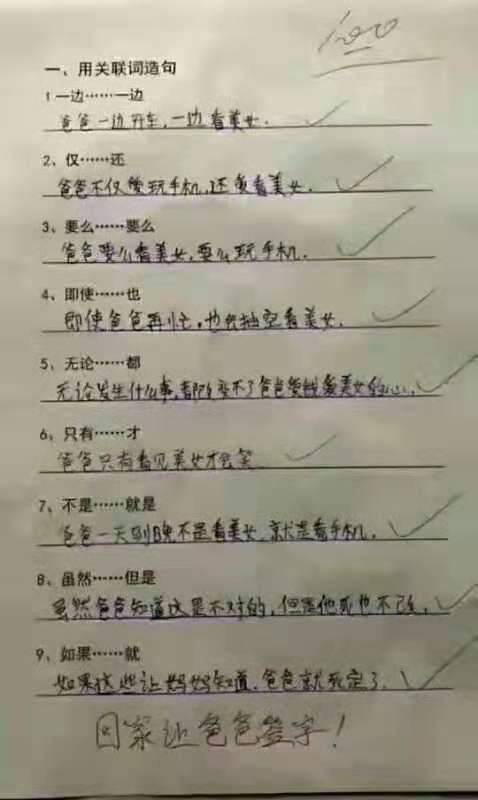 100
一、用关联词造句
1 一边……一边
爸爸一边开车,一边看美女.
2、仅……还
爸爸不仅爱玩手机,还爱看美女.
3、要么……要么
爸爸要么看美女,要么玩手机.
4、即使……也
即使爸爸再忙,也会抽空看美女.
5、无论……都
无论发生什么事,都改变不了爸爸爱美女的心.
6、只有……才
爸爸只有看见美女才会笑
7、不是……就是
爸爸一天到晚不是看美女,就是看手机.
8、虽然……但是
虽然爸爸知道这是不对的,但是他死也不改.
9、如果……就
如果这些让妈妈知道,爸爸就死定了.
回家让爸爸签字!